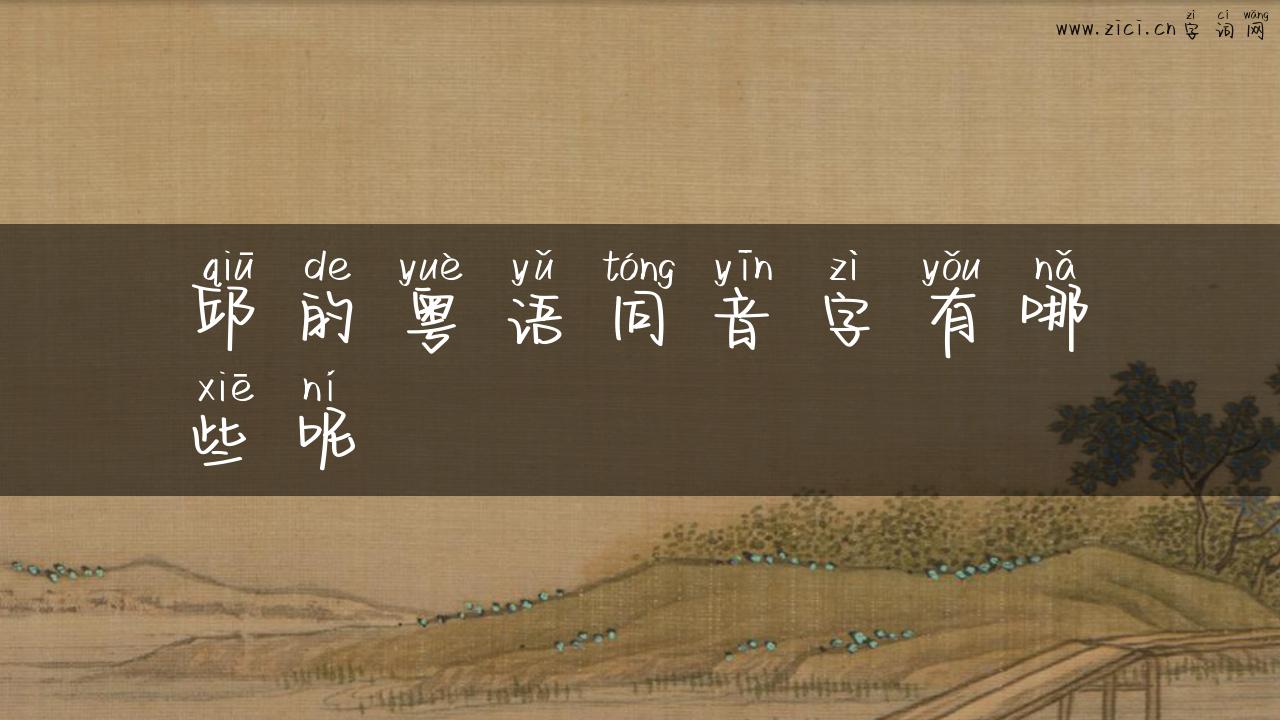 zì cí wǎng
www.zici.cn字词网
qiū de yuè yǔ tóng yīn zì yǒu nǎ
邱的粤语同音字有哪
xiē ní
些呢